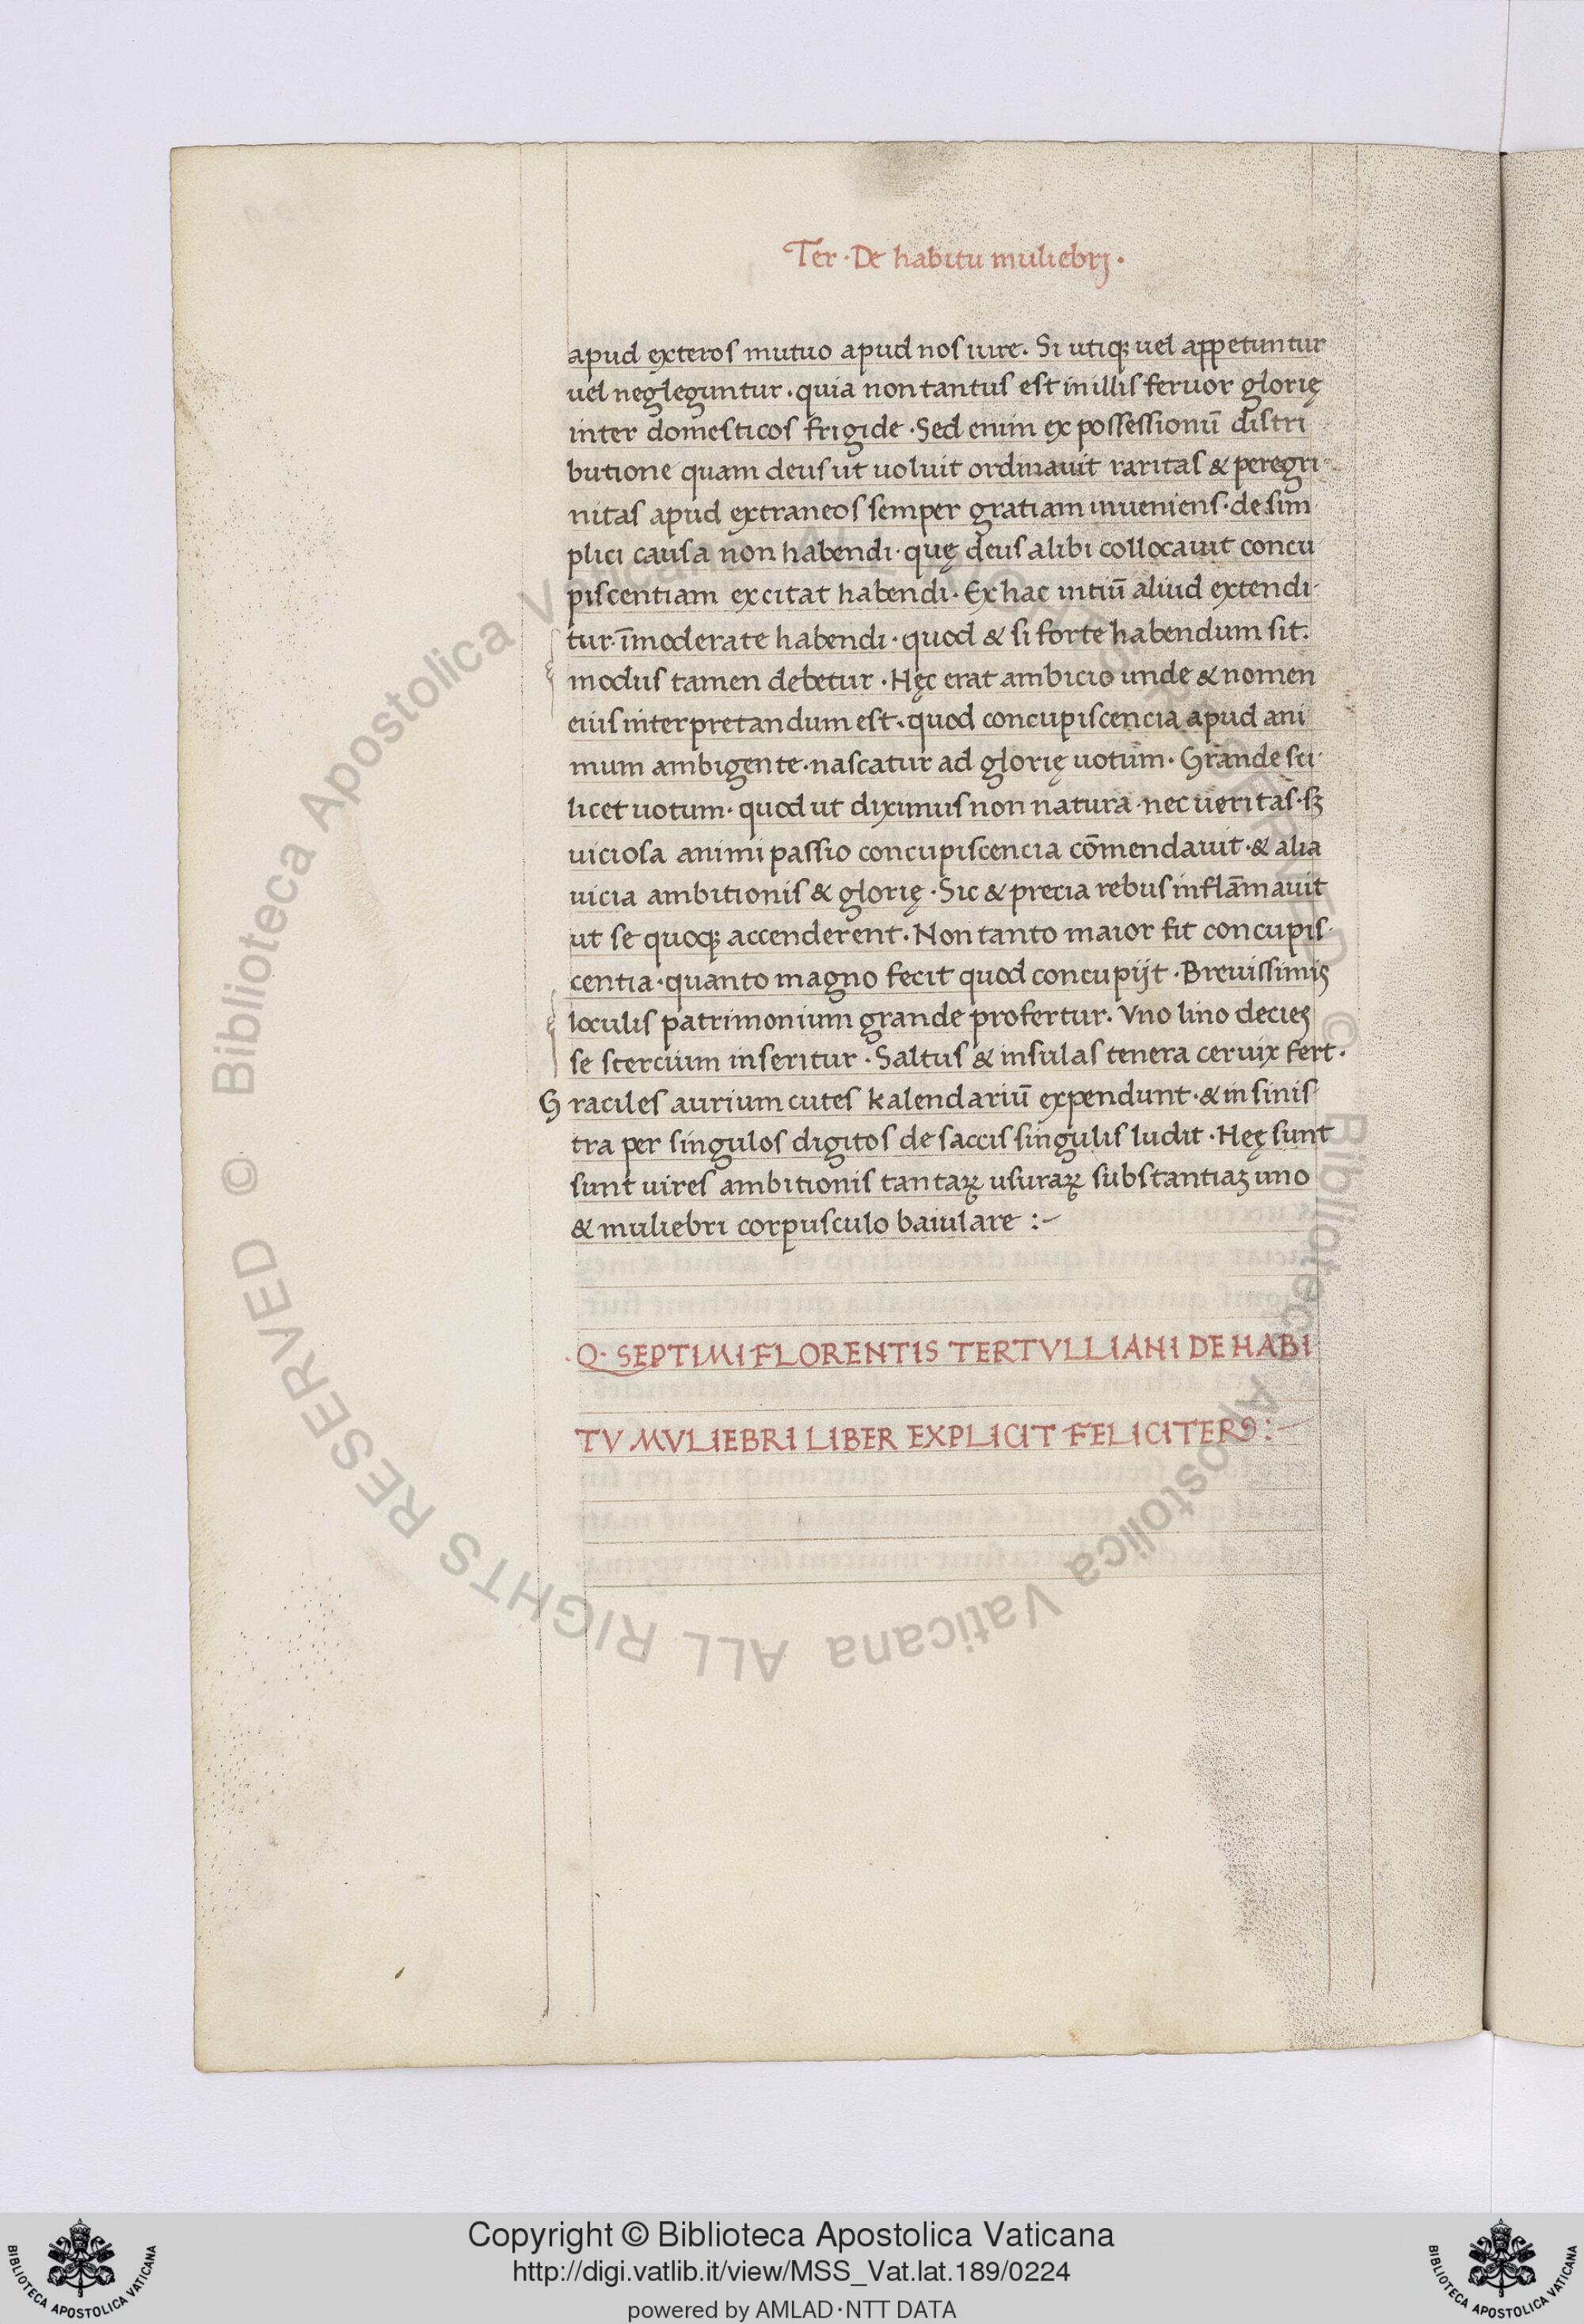 Ter · De habitu muliebrj ·
apud exteros mutuo apud nos iure. Si utiqꝫ uel appetuntur
uel negleguntur · quia non tantus est in illis feruor glorię
inter domesticos frigide · Sed enim ex possessionū distri
butione quam deus ut uoluit ordinauit raritas & peregri-
nitas apud extraneos semper gratiam inueniens · de sim
plici causa non habendi · quę deus alibi collocauit concu
piscentiam excitat habendi · Ex hac intiū aliud extendi-
tur · īmoderate habendi · quod & si forte habendum sit.
modus tamen debetur · Hęc erat ambicio unde & nomen
eius interpretandum est · quod concupiscencia apud ani
mum ambigente · nascatur ad glorię uotum · Grande sci-
licet uotum · quod ut diximus non natura · nec ueritas · sꝫ
uiciosa animi passio concupiscencia cōmendauit · & alia
uicia ambitionis & glorię · Sic & precia rebus inflāmauit
ut se quoqꝫ accenderent · Non tanto maior fit concupis-
centia · quanto magno fecit quod concupijt · Breuissimis
loculis patrimonium grande profertur. Vno lino decies
se stercium inseritur · Saltus & insulas tenera ceruix fert ·
Graciles aurium cutes kalendariū expendunt · & in sinis-
tra per singulos digitos de saccis singulis ludit · Hęę sunt
sunt uires ambitionis tantaꝝ usuraꝝ substantiaꝫ uno
& muliebri corpusculo baiulare :-
· Q · SEPTIMI FLORENTIS TERTVLLIANI DE HABI
TV MVLIEBRI LIBER EXPLICIT FELICITER :-
© Biblioteca Apostolica Vaticana ALL RIGHTS RESERVED
© Biblioteca Apostolica Vaticana ALL RIGHTS RESERVED
Copyright © Biblioteca Apostolica Vaticana
http://digi.vatlib.it/view/MSS_Vat.lat.189/0224
powered by AMLAD·NTT DATA
BIBLIOTECA APOSTOLICA VATICANA
BIBLIOTECA APOSTOLICA VATICANA